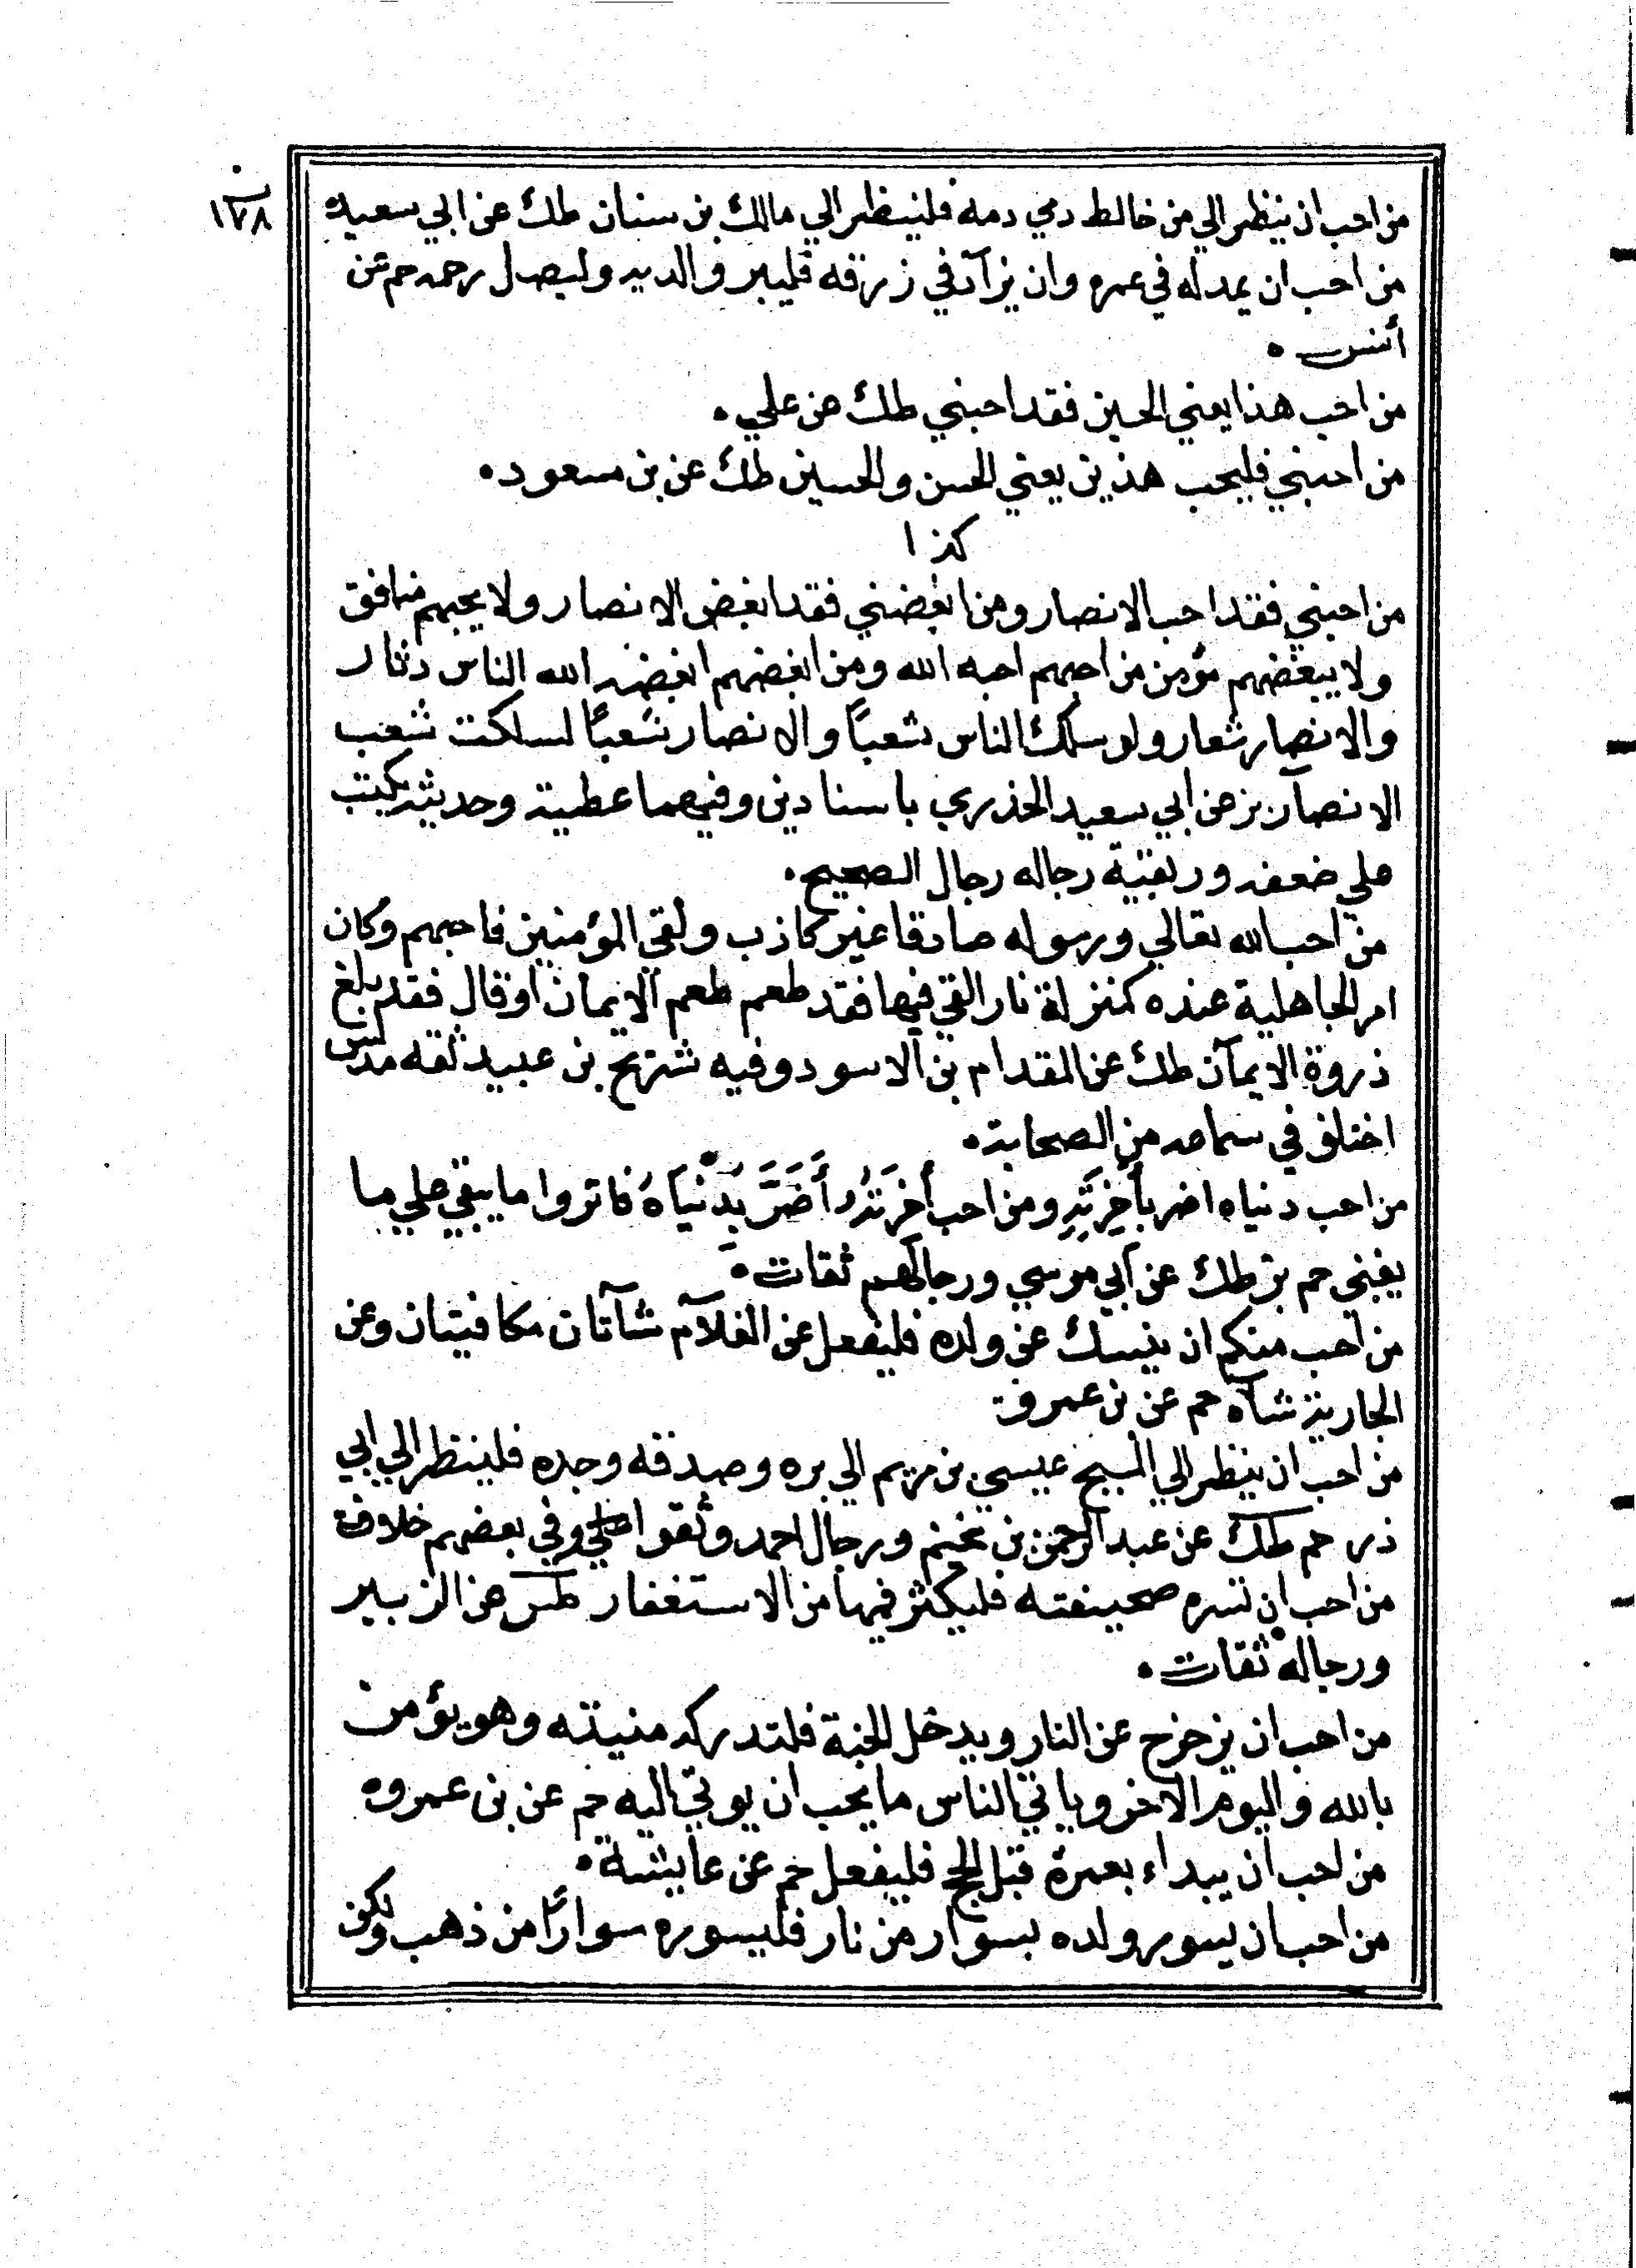 ١٧٨
من احب ان ينظر الي من خالط دمي دمه فلينظر الي مالك بن سنان طك عن ابي سعيد
من احب ان يمد له في عمره وان يزآد في زرزقه فليبر والديه وليصل رحمه حم عن
أنس
من احب هذا يعني الحسين فقد احبني طك عن علي
من احبني فليحب هذين يعني الحسن والحسين طك عن بن مسعود
كذا
من احبني فقد احب الانصار ومن ابغضني فقد ابغض الانصار ولا يحبهم منافق
ولا يبغضهم مؤمن من احبهم احبه الله ومن ابغضهم ابغضه الله الناس دثار
والانصار شعار ولو سلك الناس شعباً والانصار شعباً لسلكت شعب
الانصآر بز عن ابي سعيد الخذري باسنادين وفيهما عطية وحديثه يكتب
علي ضعفه وربقية رجاله رجال الصحيح
من احب الله تعالي ورسوله صادقا غير كاذب ولقى المؤمنين فاحبهم وكان
امر الجاهلية عنده كمنزلة نار القي فيها فقد طعم طعم الايمان او قال فقد بلغ
ذروة الايمآن طك عن المقدام بن الاسود وفيه شريح بن عبيد ثقه مدلس
اختلف في سماعه من الصحابة
من احب دنياه اضر بأخِرَتِهِ ومن احب أخرَتَهُ أَضَرَّ بِدُنْيَاهُ فاثروا ما يبقي علي ما
يفني حم بز طك عن أبي موسي ورجالهم ثقات
من احب منكم ان ينسك عن ولده فليفعل عن الغلآم شآتان مكافيتان وعن
الجارية شآه حم عن بن عمرو
من احب ان ينظر الي المسيح عيسي بن مريم الي بره وصدقه وجده فلينظر الي ابي
ذر حم طك عن عبد الرحمن بن غنم ورجال احمد وثقوا وفي بعضهم خلاف
من احب ان تسره صحيفته فليكثر فيها من الاستغفار طس عن الزبير
ورجاله ثقات
من احب ان يزحزح عن النار ويدخل الجنة فلتدركه منيته وهو يؤمن
بالله واليوم الاخر وياتي الناس ما يحب ان يوتي اليه حم عن بن عمرو
من احب ان يبداء بعمرة قبل الحج فليفعل حم عن عايشة
من احب ان يسور ولده بسوار من نار فليسوره سوارًا من ذهب ولكن